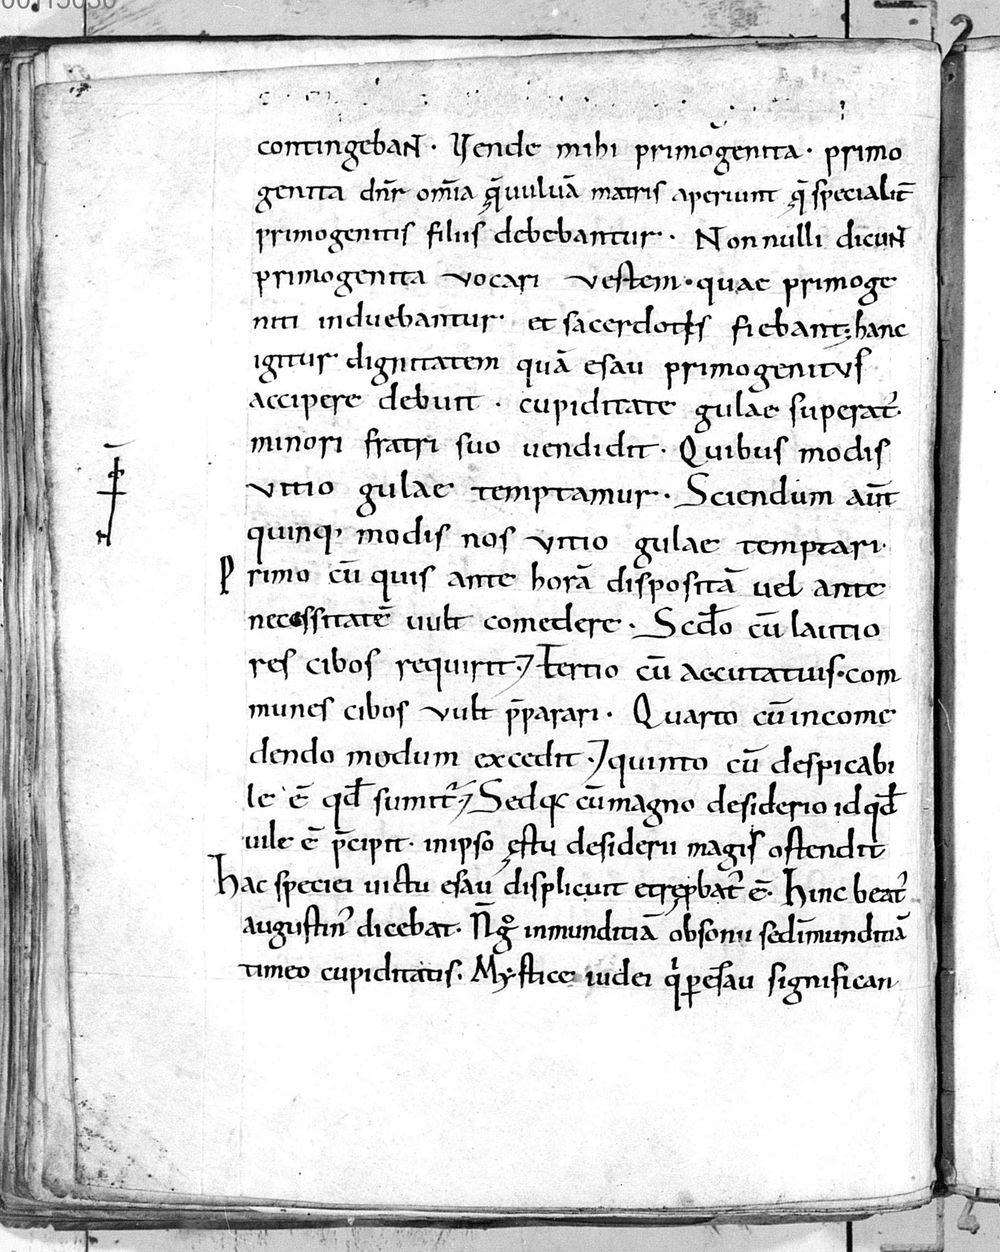 contingebaɴᷓ. Vende mihi primogenita. primo
genita dn̄r om̄ia q̄ uuluā matris aperiunt q̄ specialit̄
primogenitis filiis debebantur. Nonnulli dicunt
primogenita vocari vestem. quae primoge
niti induebantur. et sacerdotes fiebant; hanc
igitur dignitatem quā esau primogenitus
accipere debuit. cupiditate gulae superat᾽.
minori fratri suo uendidit. Quibus modis
vitio gulae temptamur. Sciendum aūt
quinq; modis nos vitio gulae temptari.
Primo cū quis ante horā dispositā uel ante
necessitatē uult comedere. Scd̄o cū lautio
res cibos requirit; Tertio cū accuratius. com
munes cibos vult p̄parari. Quarto cū in come
dendo modum excedit. quinto cū despicabi
le ē qd̄ sumit᾽; Sed & cū magno desiderio id qd̄
uile ē p̄cipit. in ipso ęstu desiderii magis ostendit
Hac speciei uictu esau displicuit et rep̱bat᾽ ē. Hinc beat᾽
augustin᾽ dicebat. N̄ g̊ inmunditiā obsonii sed īmunditiā
timeo cupiditatis. Mystice iudei q̇ ꝑ esau significan